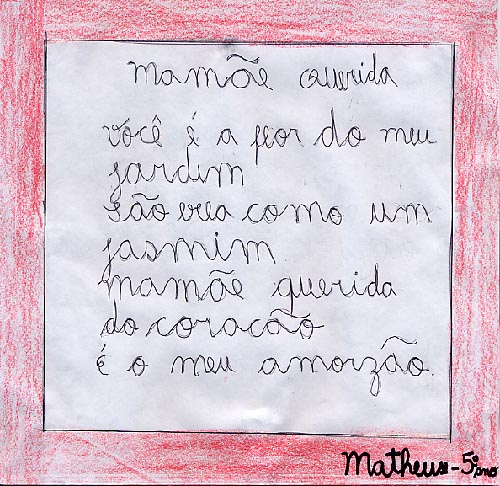 mamãe querida
você é a flor do meu
jardim
são bela como um
jasmim
mamãe querida
do coração
é o meu amorzão.
Matheus - 5º ano